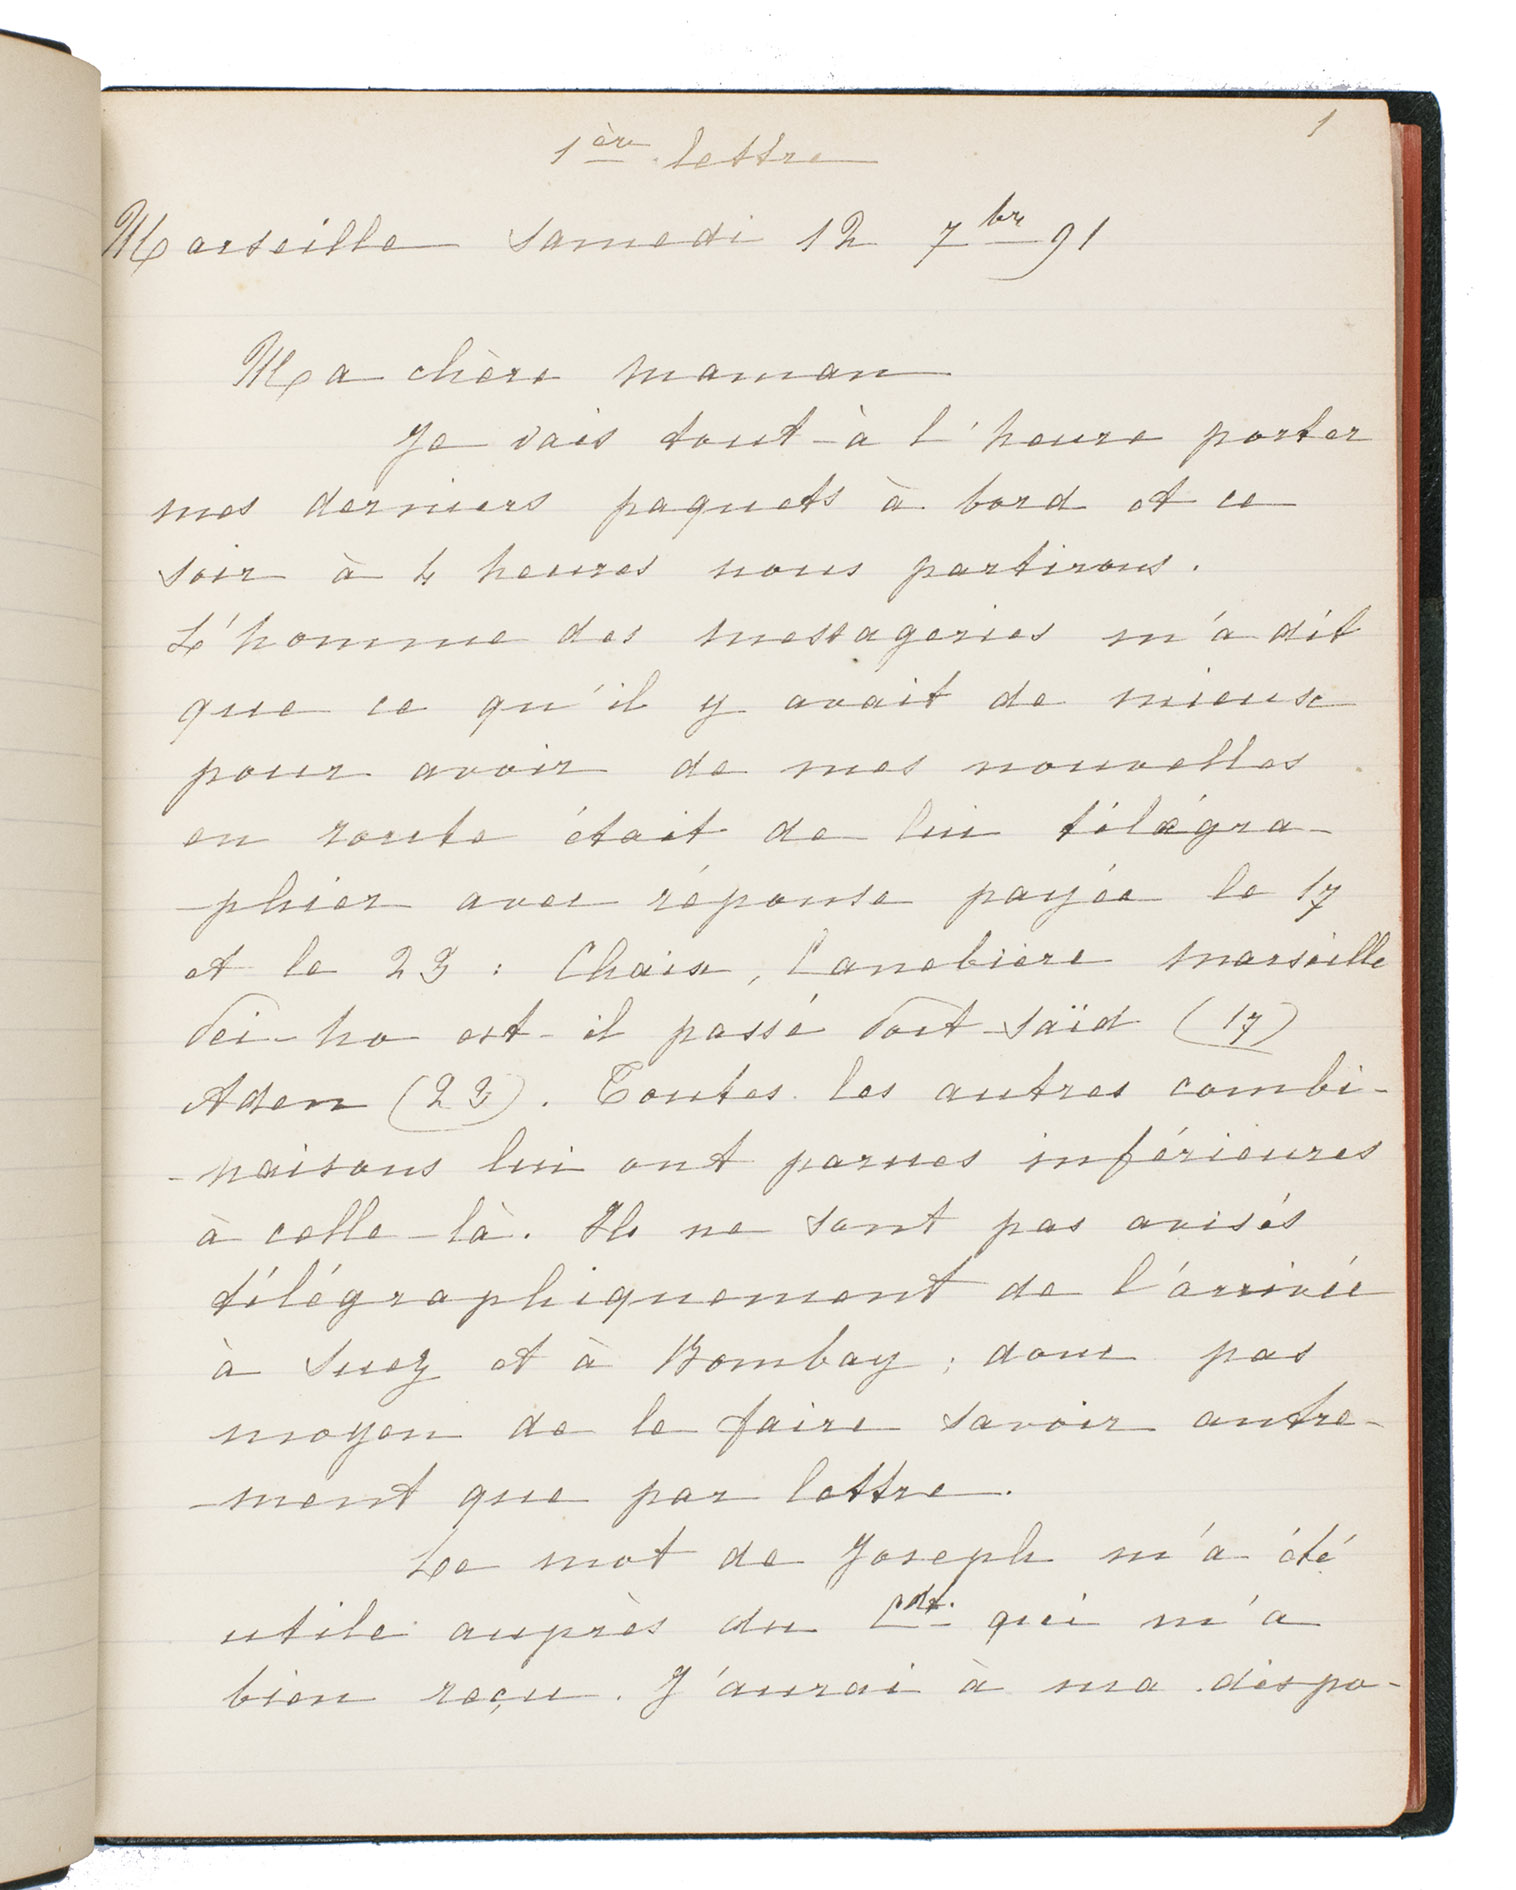 1
1ère lettre
Marseille samedi 12 7bre 91
Ma chère maman
Je vais tout-à l'heure porter
mes derniers paquets à bord et ce
soir à 4 heures nous partirons.
L'homme des messageries m'a dit
que ce qu'il y avait de mieux
pour avoir de mes nouvelles
en route était de lui télégra-
-phier avec réponse payée le 17
et le 23 : Chaix, Canebière Marseille
Pei-ho est-il passé Port-Saïd (17)
Aden (23). Toutes les autres combi-
-naisons lui ont parues inférieures
à celle-là. Ils ne sont pas avisés
télégraphiquement de l'arrivée
à Suez et à Bombay ; donc pas
moyen de le faire savoir autre-
-ment que par lettre.
Le mot de Joseph m'a été
utile auprès du Cdt. qui m'a
bien reçu. J'aurai à ma dispo-